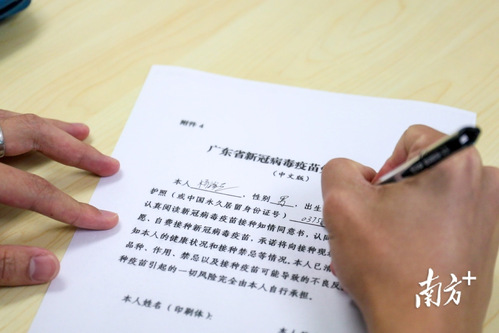 南方+
附件 4
广东省新冠病毒疫苗
(中文版)
本人 ，性别 男 ，出生
护照（或中国永久居留身份证号） 0375
认真阅读新冠病毒疫苗接种知情同意书，认
愿、自费接种新冠病毒疫苗，承诺将向接种现
知本人的健康状况和接种禁忌等情况。本人已
品种、作用、禁忌以及接种疫苗可能导致的不良反
种疫苗引起的一切风险完全由本人自行承担。
本人姓名（印刷体）：
南方+